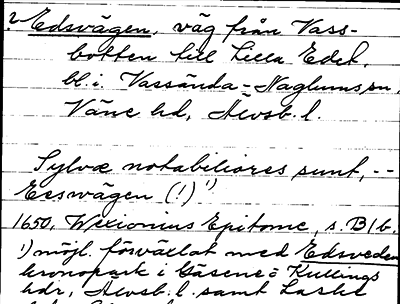 ? Edsvägen, väg från Vass-
botten till Lilla Edet,
bl. i. Vassända-Naglums sn,
Väne hd, Älvsb. l.
Sylvæ notabiliores sunt, --
Eeswägen (!) ¹)
1650, Wexionius Epitome, s. B1b.
¹) möjl. förväxlat med Edsveden
kronopark i Gäsene o Kullings
hdr, Älvsb. l. samt Laske